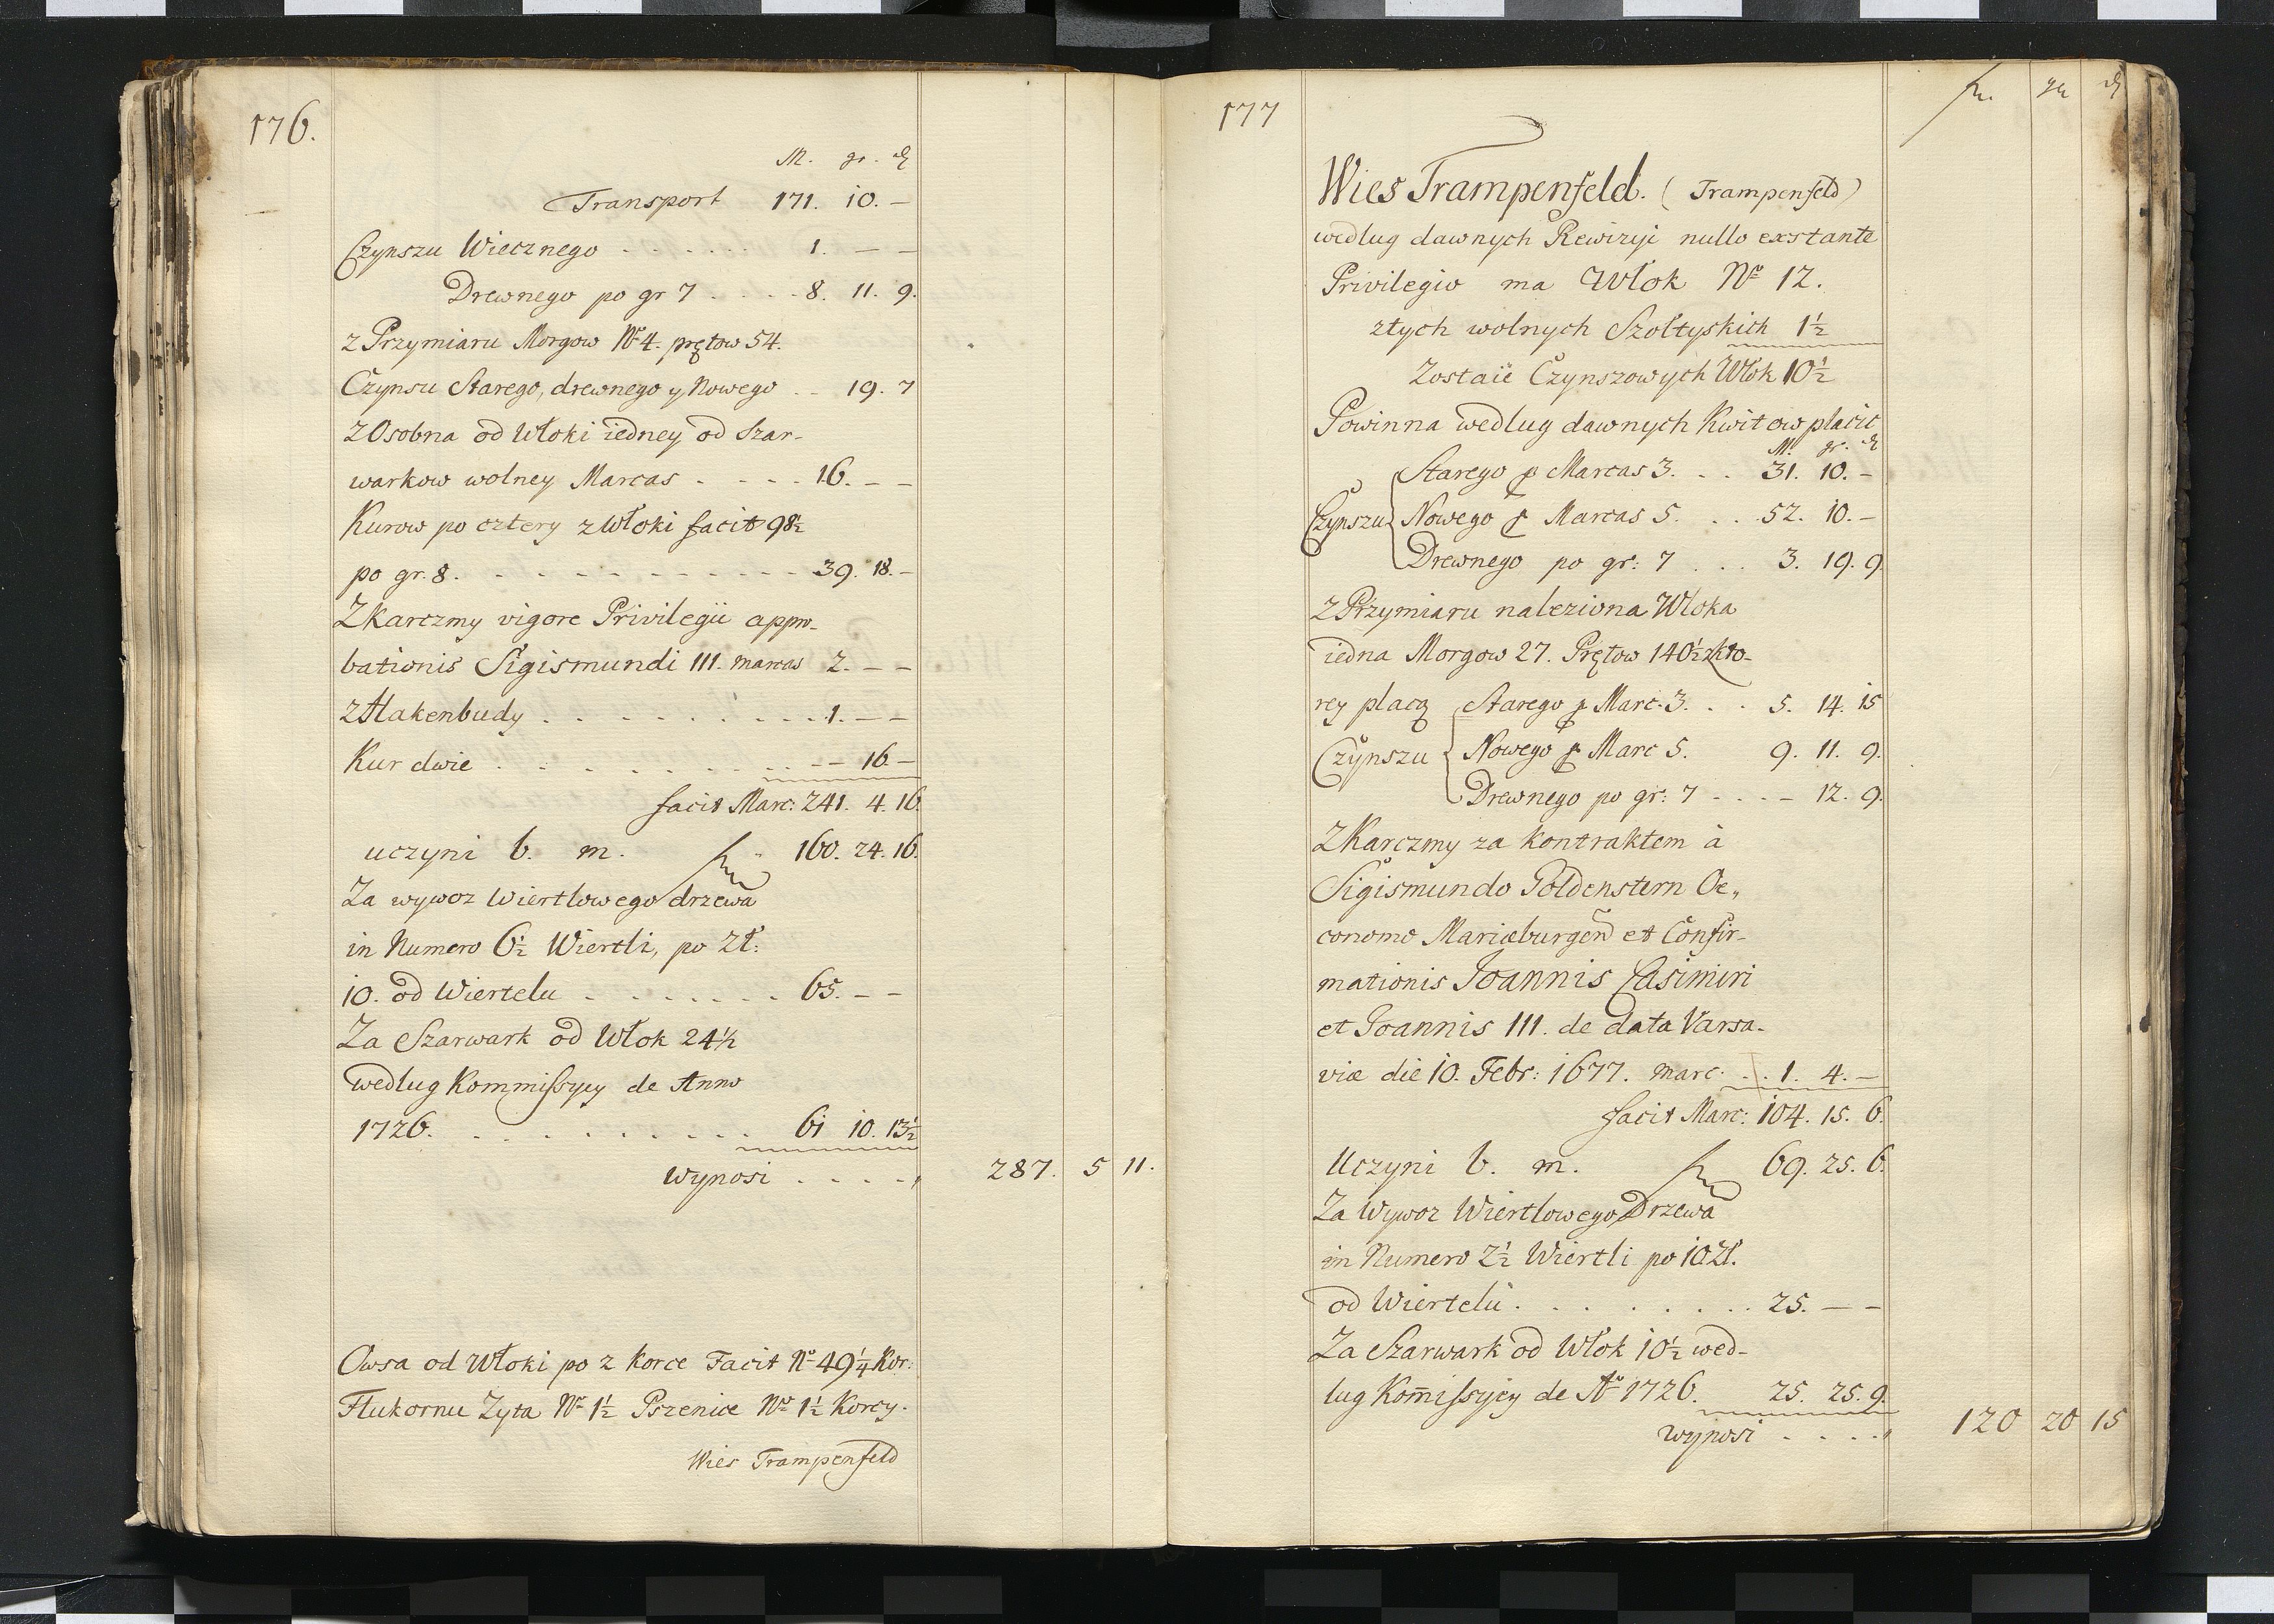 176.
M. gr. ₰
Transport 171. 10. –
Czynszu Wiecznego . . . . . . 1. – –
Drewnego po gr 7 . . . . 8. 11. 9.
z Przymiaru Morgow No 4. prętow 54.
Czynsu Starego, drewnego y Nowego . . 19. 7
z Osobna od Włoki iedney od Szar-
warkow wolney Marcas . . . . 16. – –
Kurow po cztery z Włoki facit 98½
po gr. 8. . . . . . . . . . . 39. 18. –
Z Karczmy vigore Privilegii appro-
bationis Sigismundi III. marcas 2. – –
z Hakenbudy . . . . . . . . . 1. – –
Kur dwie . . . . . . . . – – 16 –
facit Marc: 241. 4. 16.
uczyni b. m. fl. 160. 24. 16.
Za wywoz Wiertlowego drzewa
in Numero 6½ Wiertli, po Zł:
10. od Wiertelu . . . . . . . 65. – –
Za Szarwark od Włok 24½
według Kommissyey de Anno
1726. . . . . . . . . . 61 10. 13½
Wynosi . . . . , 287. 5 11.
Owsa od Włoki po 2 korce Facit No 49¼ Kor:
Flukornu Zyta No 1½ Pszenice No 1½ Korcy.
Wies Trampenfeld
177
fl. gr ₰
Wies Trampenfeld. (Trampenfeld)
wedlug dawnych Rewizyi nullo exstante
Privilegio ma Włok No 12.
z tych wolnych Szoltyskich 1½
Zostaie Czynszowych Włok 10½
Powinna wedlug dawnych Kwitow placic
M. gr. ₰
Starego p Marcas 3. . . 31. 10. –
Czynszu Nowego p Marcas 5. . . 52. 10. –
Drewnego po gr: 7 . . . 3. 19. 9
z Przymiaru naleziona Wloka
iedna Morgow 27. Prętow 140½ z kto-
rey placą Starego p Marc. 3. . . 5. 14. 15
Czynszu Nowego p Marc 5. 9. 11. 9.
Drewnego po gr: 7 . . . – 12. 9.
Z Karczmy za kontraktem à
Sigismundo Goldenstern Oe„
conomo Mariæburgen et Confir-
mationis Joannis Casimiri
et Joannis III. de data Varsa-
viæ die 10. Febr: 1677. marc. . . 1. 4. –
facit Marc: 104. 15. 6.
Uczyni b. m. fl. 69. 25. 6.
Za Wywoz Wiertlowego Drzewa
in Numero 2½ Wiertli po 10 Zł.
od Wiertelu . . . . . . . . 25. – –
Za Szarwark od Włok 10½ wed-
lug Kom̄issyey de Ao 1726. 25. 25. 9.
wynosi . . . . , 120 20 15